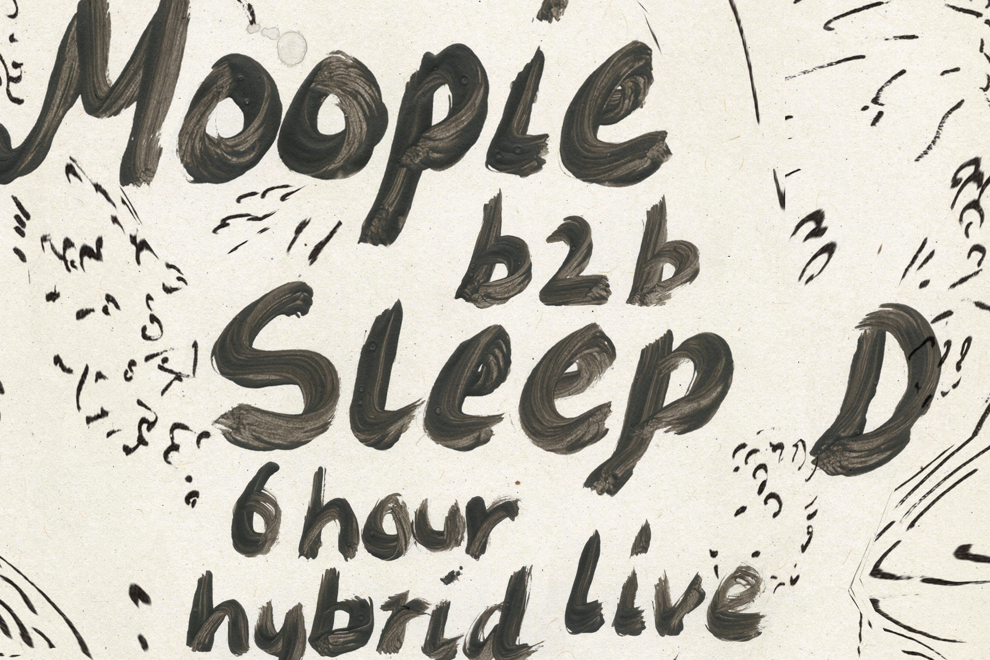 Moopie
b2b
Sleep D
6 hour
hybrid live